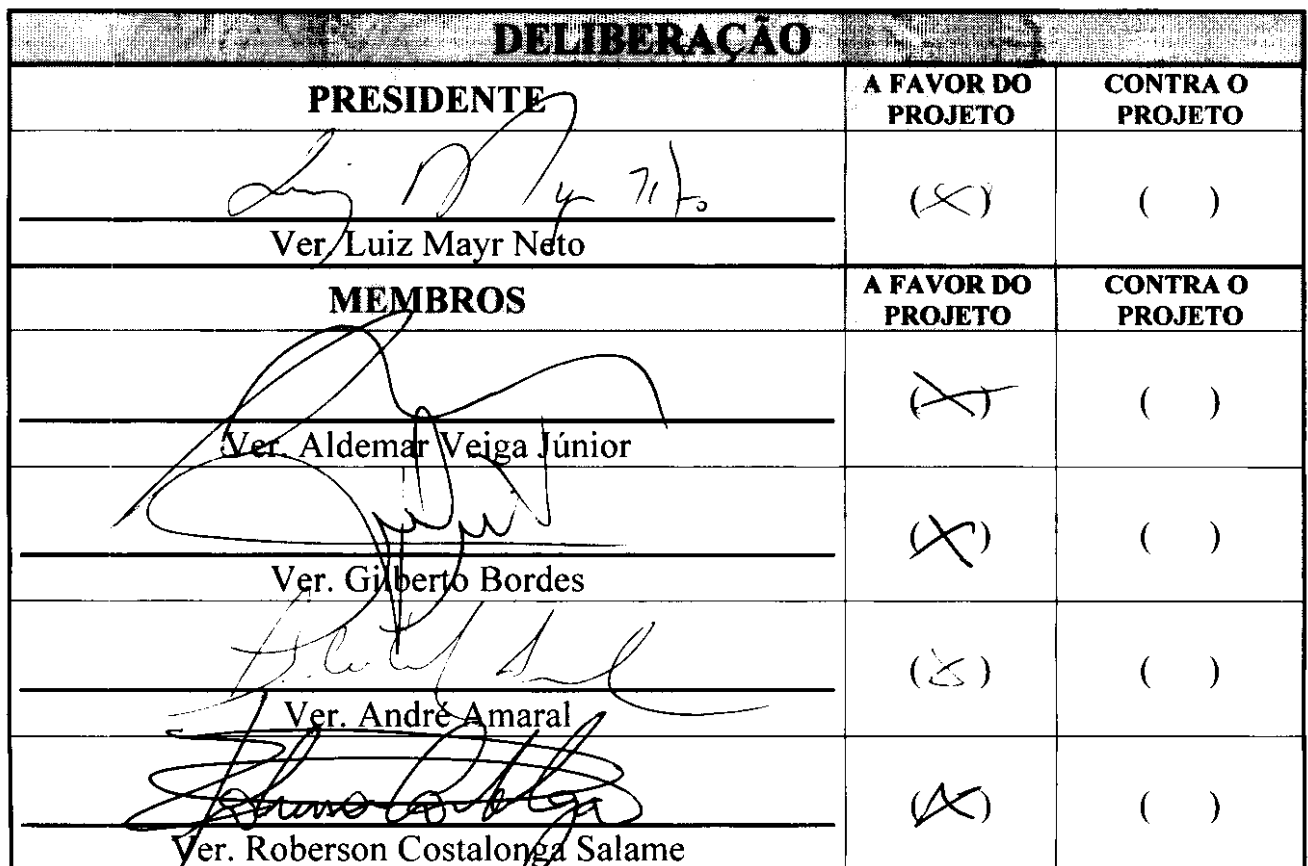 DELIBERAÇÃO
PRESIDENTE A FAVOR DO PROJETO CONTRA O PROJETO
(X) ( )
Ver. Luiz Mayr Neto
MEMBROS A FAVOR DO PROJETO CONTRA O PROJETO
(X) ( )
Ver. Aldemar Veiga Júnior
(X) ( )
Ver. Gilberto Bordes
(X) ( )
Ver. André Amaral
(X) ( )
Ver. Roberson Costalonga Salame